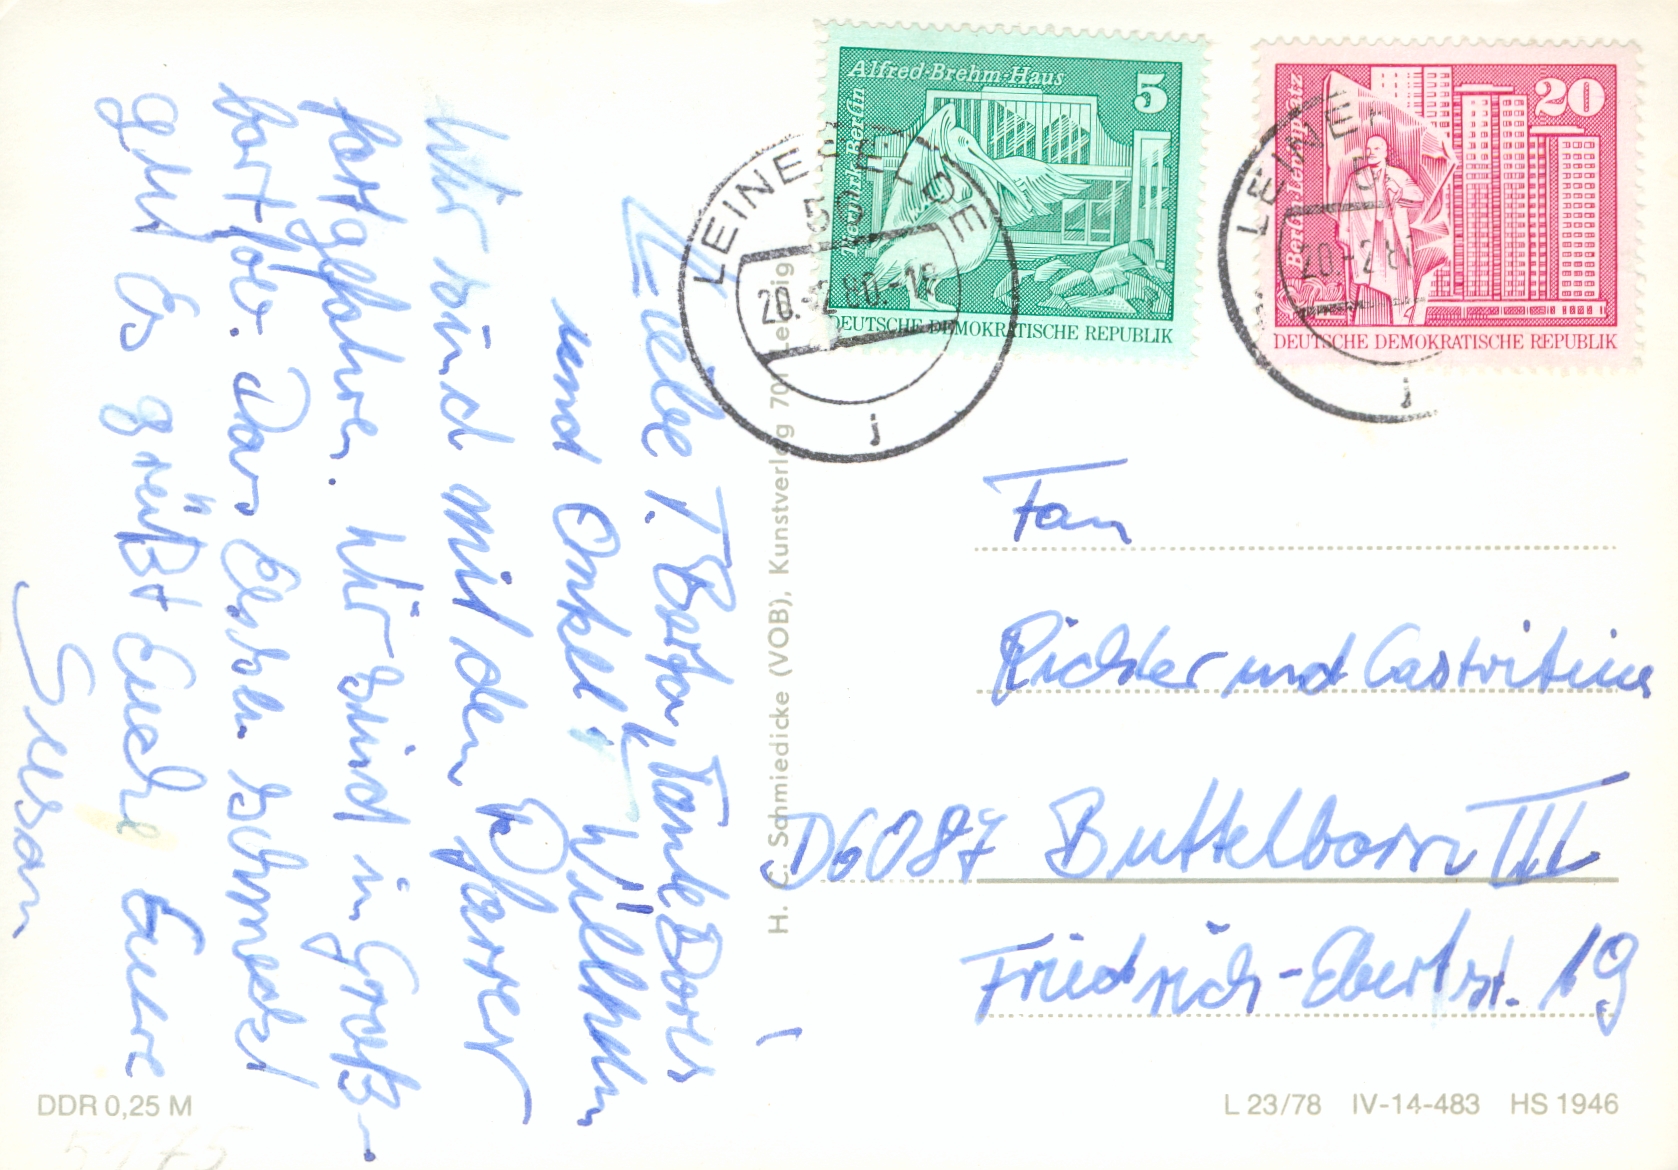 Liebe T. Barbara, Tante Doris
und Onkel Willhelm
Wir sind mit den Pfarrer
fortgefahren. Wir sind in Groß-
bart Das Essen schmeckt
gut Es grüßt Euche Eure
Susan
H. C. Schmiedicke (VOB), Kunstverlag 701 Leipzig
Alfred-Brehm-Haus
5
Tierpark Berlin
DEUTSCHE DEMOKRATISCHE REPUBLIK
20
Berlin-Leninplatz
DEUTSCHE DEMOKRATISCHE REPUBLIK
LEINEFELDE
20.-2.80.-18
j
LEINEF
20.-2.8
j
Fam
Richter und
D6087 Büttelborn III
Friedrich-Ebertst. 19
DDR 0,25 M
L 23/78 IV-14-483 HS 1946